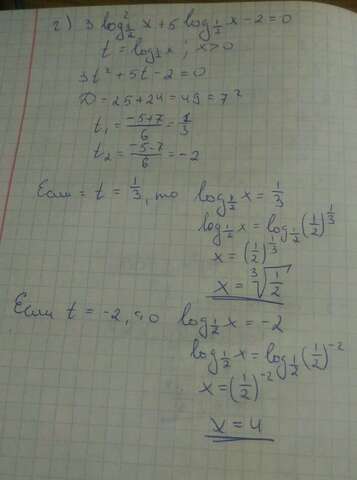 г) 3 log²_{1/2} x + 5 log_{1/2} x - 2 = 0
t = log_{1/2} x ; x > 0
3t² + 5t - 2 = 0
D = 25 + 24 = 49 = 7²
t₁ = (-5+7)/6 = 1/3
t₂ = (-5-7)/6 = -2
Если = t = 1/3, то log_{1/2} x = 1/3
log_{1/2} x = log_{1/2} (1/2)^{1/3}
x = (1/2)^{1/3}
x = ∛(1/2)
Если t = -2, то log_{1/2} x = -2
log_{1/2} x = log_{1/2} (1/2)^{-2}
x = (1/2)^{-2}
x = 4